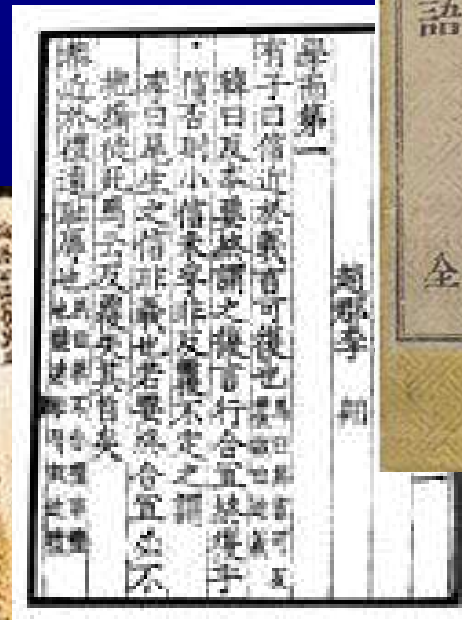 語
全
趙郡李 翱
學而第一
有子曰信近於義言可復也
韓曰反本要終謂之復言行合宜終復乎
信否則小信未孚非反覆不定之謂
李曰尾生之信非義也若要終合宜必不
抱橋徒死馬云反覆失其旨矣
恭近於禮遠恥辱也